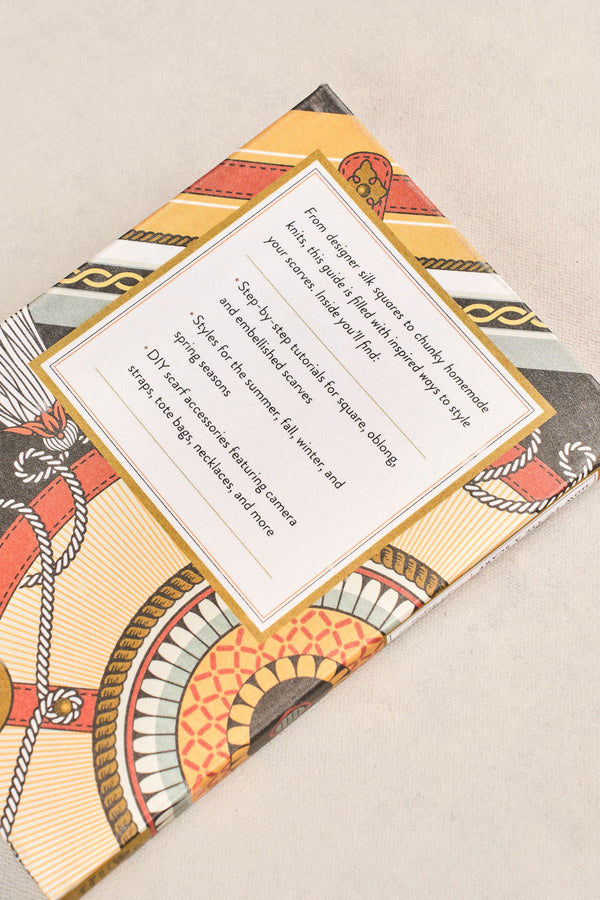 From designer silk squares to chunky homemade
knits, this guide is filled with inspired ways to style
your scarves. Inside you'll find:
• Step-by-step tutorials for square, oblong,
and embellished scarves
• Styles for the summer, fall, winter, and
spring seasons
• DIY scarf accessories featuring camera
straps, tote bags, necklaces, and more